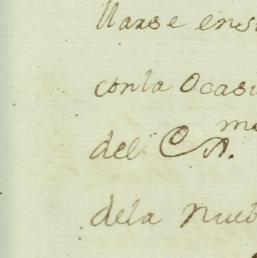 llarse en
conla Ocasi
del C A.
dela nueb